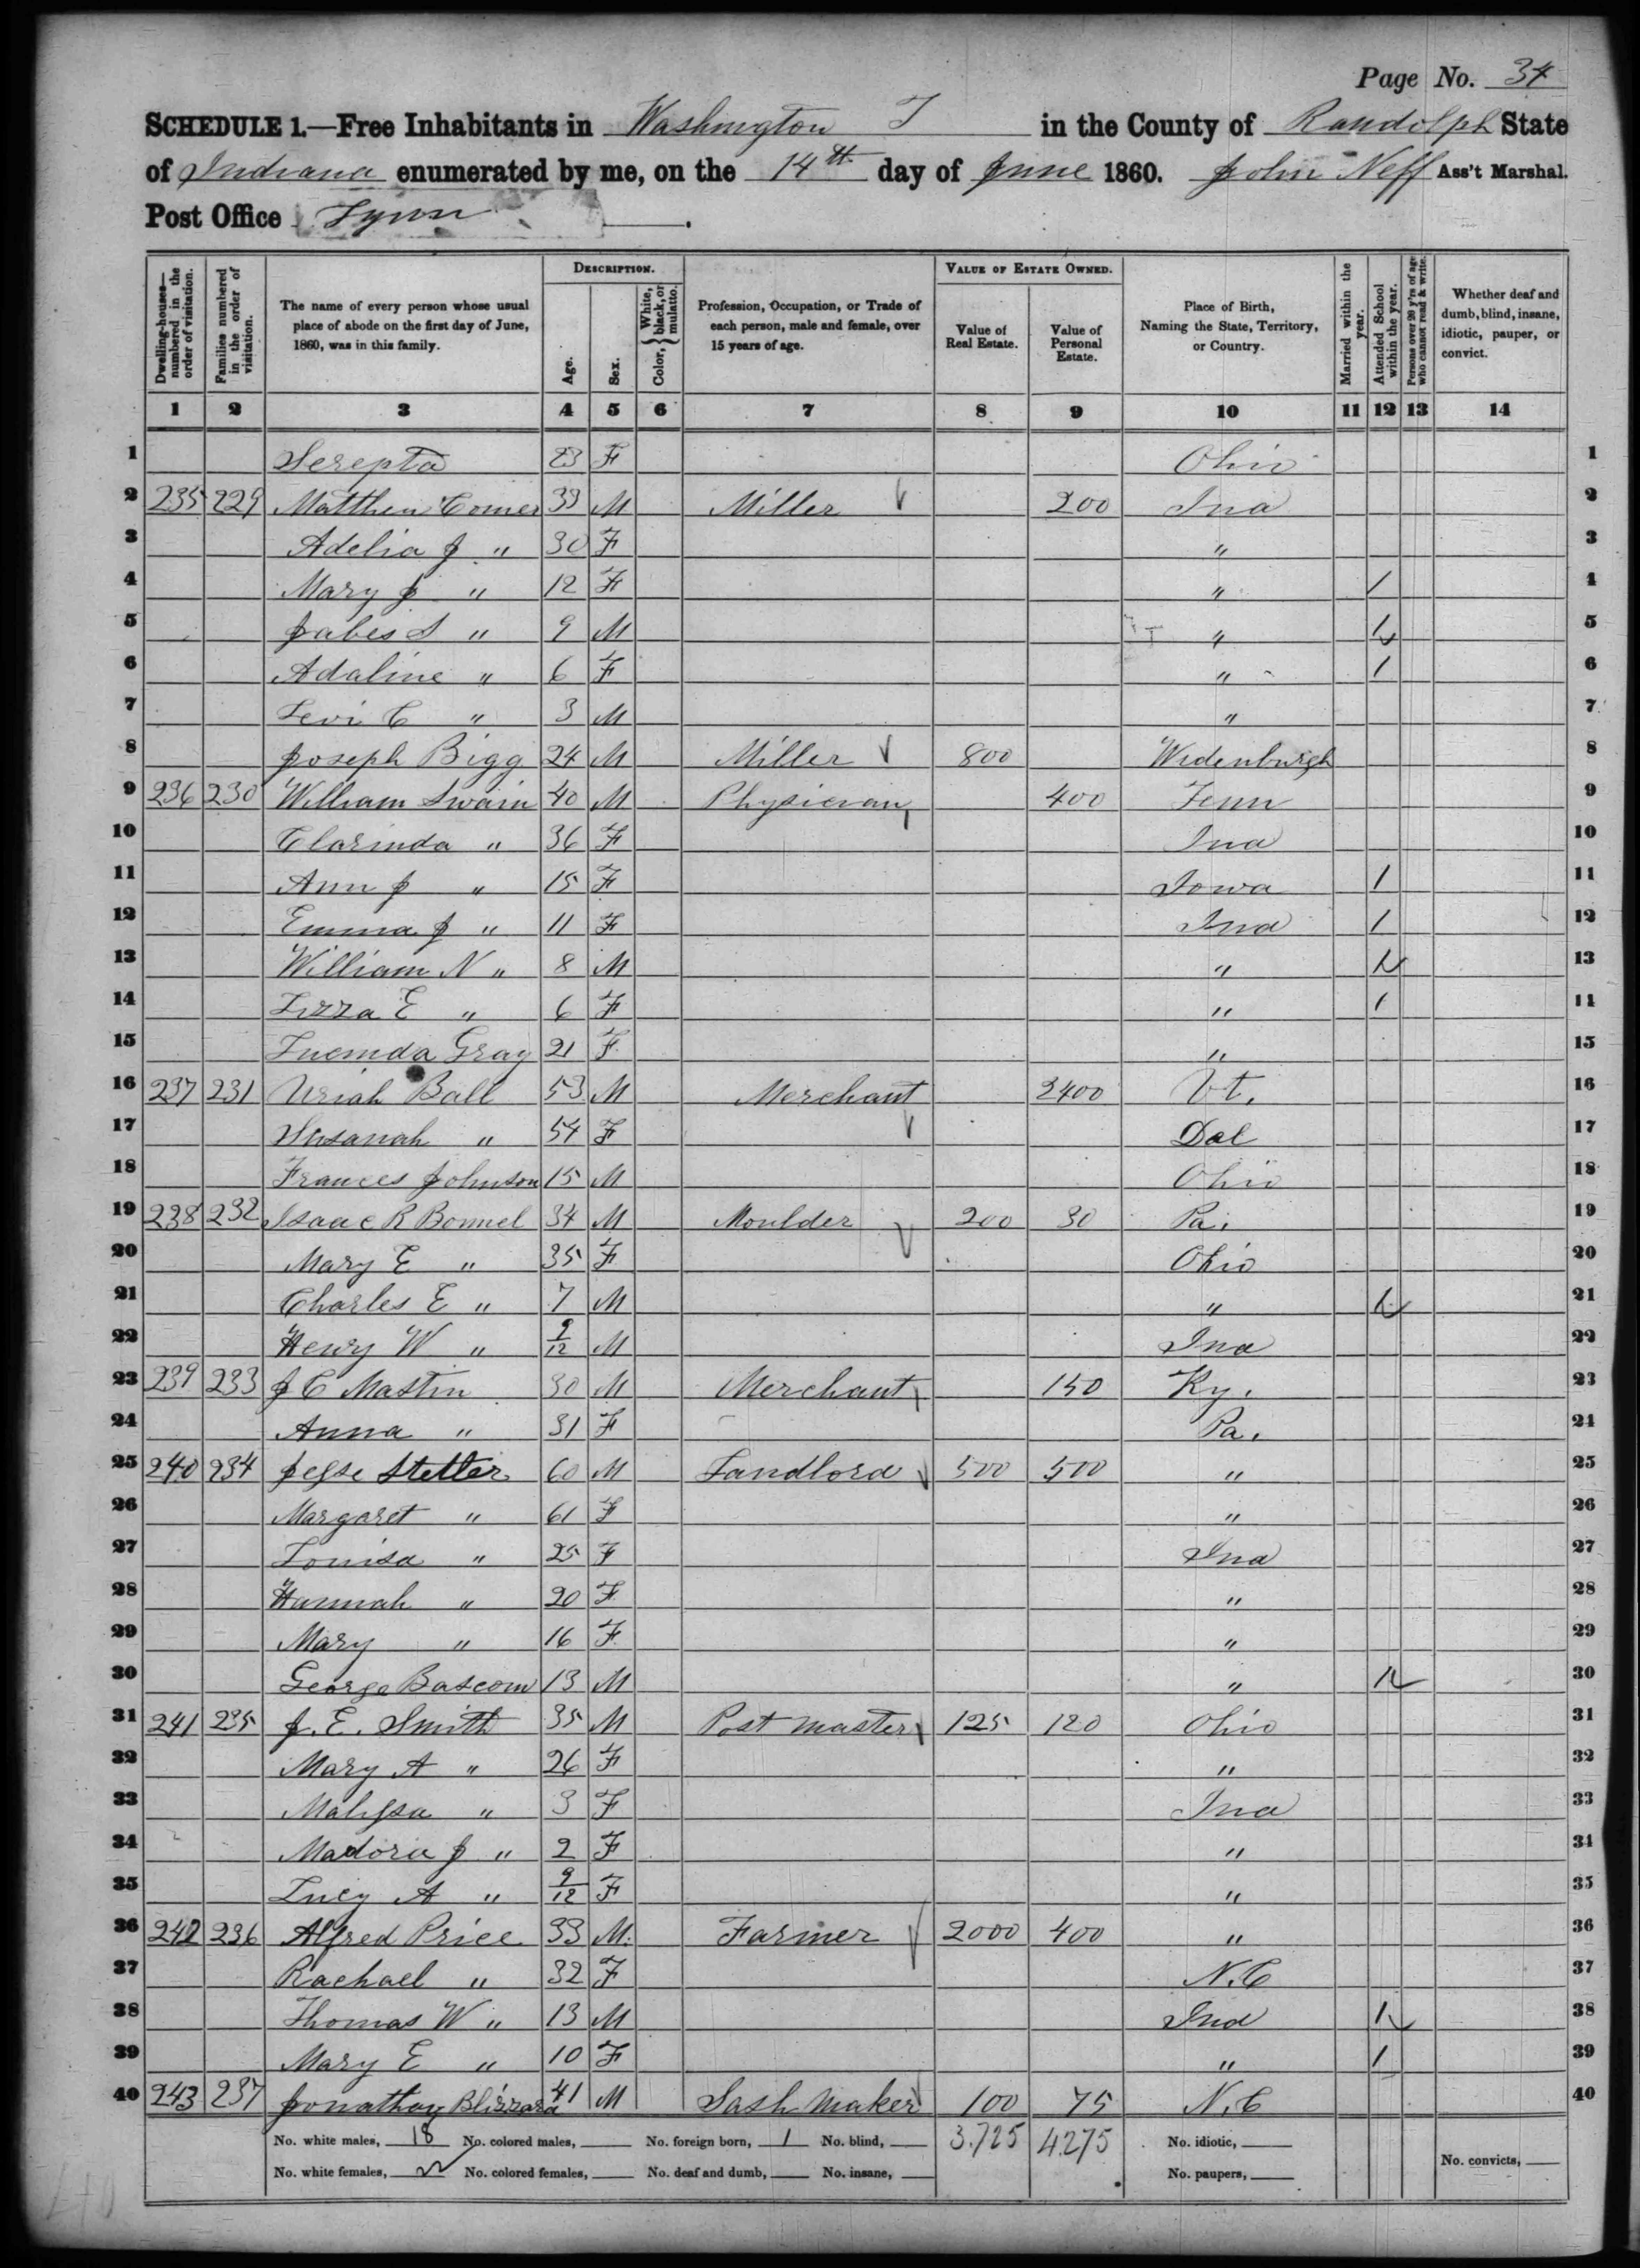 Page No. 34
SCHEDULE 1.—Free Inhabitants in Washington T in the County of Randolph State
of Indiana enumerated by me, on the 14th day of June 1860. John Neff Ass't Marshal.
Post Office Lynn
DESCRIPTION. VALUE OF ESTATE OWNED.
Dwelling-houses—numbered in the order of visitation. Families numbered in the order of visitation. The name of every person whose usual place of abode on the first day of June, 1860, was in this family. Age. Sex. Color, {White, black, or mulatto. Profession, Occupation, or Trade of each person, male and female, over 15 years of age. Value of Real Estate. Value of Personal Estate. Place of Birth, Naming the State, Territory, or Country. Married within the year. Attended School within the year. Persons over 20 y'rs of age who cannot read & write. Whether deaf and dumb, blind, insane, idiotic, pauper, or convict.
1 2 3 4 5 6 7 8 9 10 11 12 13 14
1 Serepta 23 F Ohio 1
2 235 229 Matthew Comer 33 M Miller 200 Ina 2
3 Adelia J " 30 F " 3
4 Mary J " 12 F " 1 4
5 Jabes S " 9 M " 1 5
6 Adaline " 6 F " 1 6
7 Levi C " 3 M " 7
8 Joseph Bigg 24 M Miller 800 Widenburgh 8
9 236 230 William Swain 40 M Physician 400 Tenn 9
10 Clarinda " 36 F Ina 10
11 Ann J " 15 F Iowa 1 11
12 Emma J " 11 F Ina 1 12
13 William N " 8 M " 1 13
14 Lizza E " 6 F " 1 14
15 Lucinda Gray 21 F " 15
16 237 231 Uriah Ball 53 M Merchant 2400 Vt. 16
17 Susanah " 54 F Del 17
18 Frances Johnson 15 M Ohio 18
19 238 232 Isaac R Bonnel 34 M Moulder 200 30 Pa. 19
20 Mary E " 35 F Ohio 20
21 Charles E " 7 M " 1 21
22 Henry W " 9/12 M Ina 22
23 239 233 J C Mastin 30 M Merchant 150 Ky. 23
24 Anna " 31 F Pa. 24
25 240 234 Jesse Stetler 60 M Landlord 500 500 " 25
26 Margaret " 61 F " 26
27 Louisa " 25 F Ina 27
28 Hannah " 20 F " 28
29 Mary " 16 F " 29
30 George Bascom 13 M " 1 30
31 241 235 J. E. Smith 35 M Post Master 125 120 Ohio 31
32 Mary A " 26 F " 32
33 Malissa " 3 F Ina 33
34 Madoria J " 2 F " 34
35 Lucy A " 9/12 F " 35
36 242 236 Alfred Price 33 M. Farmer 2000 400 " 36
37 Rachael " 32 F N.C 37
38 Thomas W " 13 M Ind 1 38
39 Mary E " 10 F " 1 39
40 243 237 Jonathan Blizzard 41 M Sash Maker 100 75 N.C 40
No. white males, 18 No. colored males, No. foreign born, 1 No. blind, 3.725 4.275 No. idiotic,
No. white females, 22 No. colored females, No. deaf and dumb, No. insane, No. paupers, No. convicts,